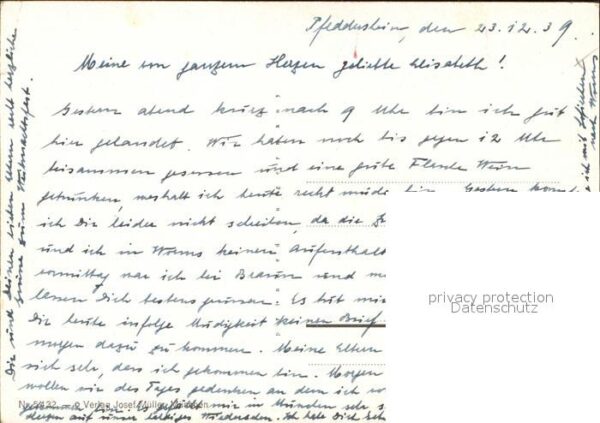 Pfeddersheim, den 23.12.39.
Meine von ganzem Herzen geliebte Elisabeth!
Gestern abend kurz nach 9 Uhr bin ich gut
hier gelandet. Wir haben noch bis gegen 12 Uhr
beisammen gesessen und eine gute Flasche Wein
getrunken, weshalb ich heute recht müde bin. Gestern konnte
ich Dir leider nicht schreiben, da die
und ich in Worms keinen Aufenthalt
vormittag war ich bei Braun und
lassen Dich bestens grüssen. Es tut mir
Dir heute infolge Müdigkeit keinen Brief
morgen dazu zu kommen. Meine Eltern
sich sehr, dass ich gekommen bin. Morgen
wollen wir des Tages gedenken an dem ich
gekommen bin. Es gefällt mir in München sehr
auf unser baldiges Wiedersehen. Ich habe Dich
Dir und Deinen lieben Eltern recht herzliche
Grüsse zum Weihnachtsfest.
ich mit
nach Worms
Verlag Josef Müller, München
privacy protection
Datenschutz